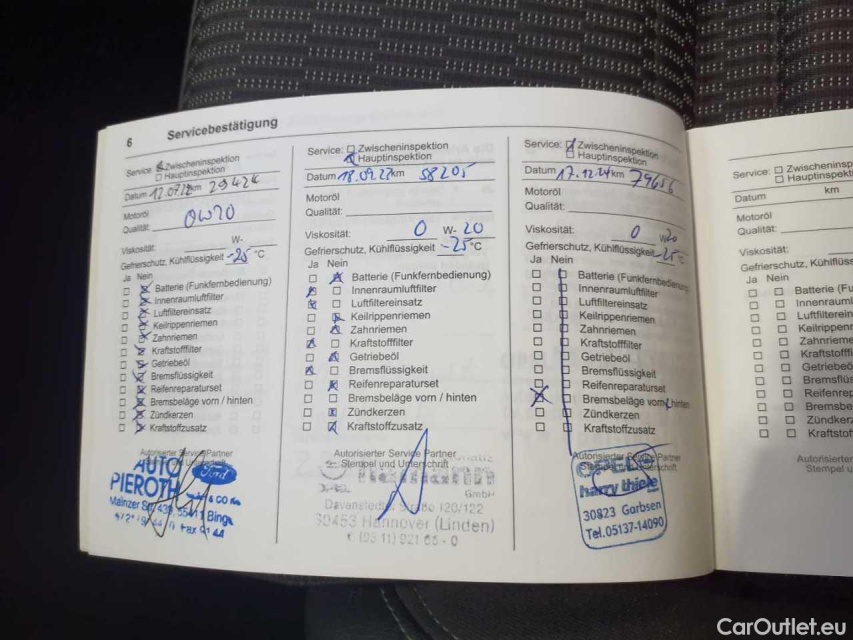 6
Servicebestätigung
Service: Zwischeninspektion
Hauptinspektion
Datum km 29424
Motoröl
Qualität: 0W20
Viskosität: W-
Gefrierschutz, Kühlflüssigkeit -25 °C
Ja Nein
Batterie (Funkfernbedienung)
Innenraumluftfilter
Luftfiltereinsatz
Keilrippenriemen
Zahnriemen
Kraftstofffilter
Getriebeöl
Bremsflüssigkeit
Reifenreparaturset
Bremsbeläge vorn / hinten
Zündkerzen
Kraftstoffzusatz
Autorisierter Service Partner
Unterschrift
AUTO
PIEROTH
Ford
Mainzer Str. 439, 55411 Bing
Service: Zwischeninspektion
Hauptinspektion
Datum 18.09. km 58205
Motoröl
Qualität:
Viskosität: 0 W- 20
Gefrierschutz, Kühlflüssigkeit -25 °C
Ja Nein
Batterie (Funkfernbedienung)
Innenraumluftfilter
Luftfiltereinsatz
Keilrippenriemen
Zahnriemen
Kraftstofffilter
Getriebeöl
Bremsflüssigkeit
Reifenreparaturset
Bremsbeläge vorn / hinten
Zündkerzen
Kraftstoffzusatz
Autorisierter Service Partner
Stempel und Unterschrift
GmbH
Davenstedter Straße 120/122
30453 Hannover (Linden)
(05 11) 921 66 - 0
Service: Zwischeninspektion
Hauptinspektion
Datum 17.12.24 km 79656
Motoröl
Qualität:
Viskosität: 0 W20
Gefrierschutz, Kühlflüssigkeit -25 °C
Ja Nein
Batterie (Funkfernbedienung
Innenraumluftfilter
Luftfiltereinsatz
Keilrippenriemen
Zahnriemen
Kraftstofffilter
Getriebeöl
Bremsflüssigkeit
Reifenreparaturset
Bremsbeläge vorn / hinten
Zündkerzen
Kraftstoffzusatz
Autorisierter Service Partner
Stempel Unterschrift
harry thiele
30823 Garbsen
Tel. 05137-14090
Service: Zwischeninsp
Hauptinspekt
Datum km
Motoröl
Qualität:
Viskosität:
Gefrierschutz, Kühlflüss
Ja Nein
Batterie (Fu
Innenrauml
Luftfilterein
Keilrippenr
Zahnrieme
Kraftstofff
Getriebeöl
Bremsflüs
Reifenrep
Bremsbe
Zündker
Kraftstof
Autorisierter
Stempel u
CarOutlet.eu